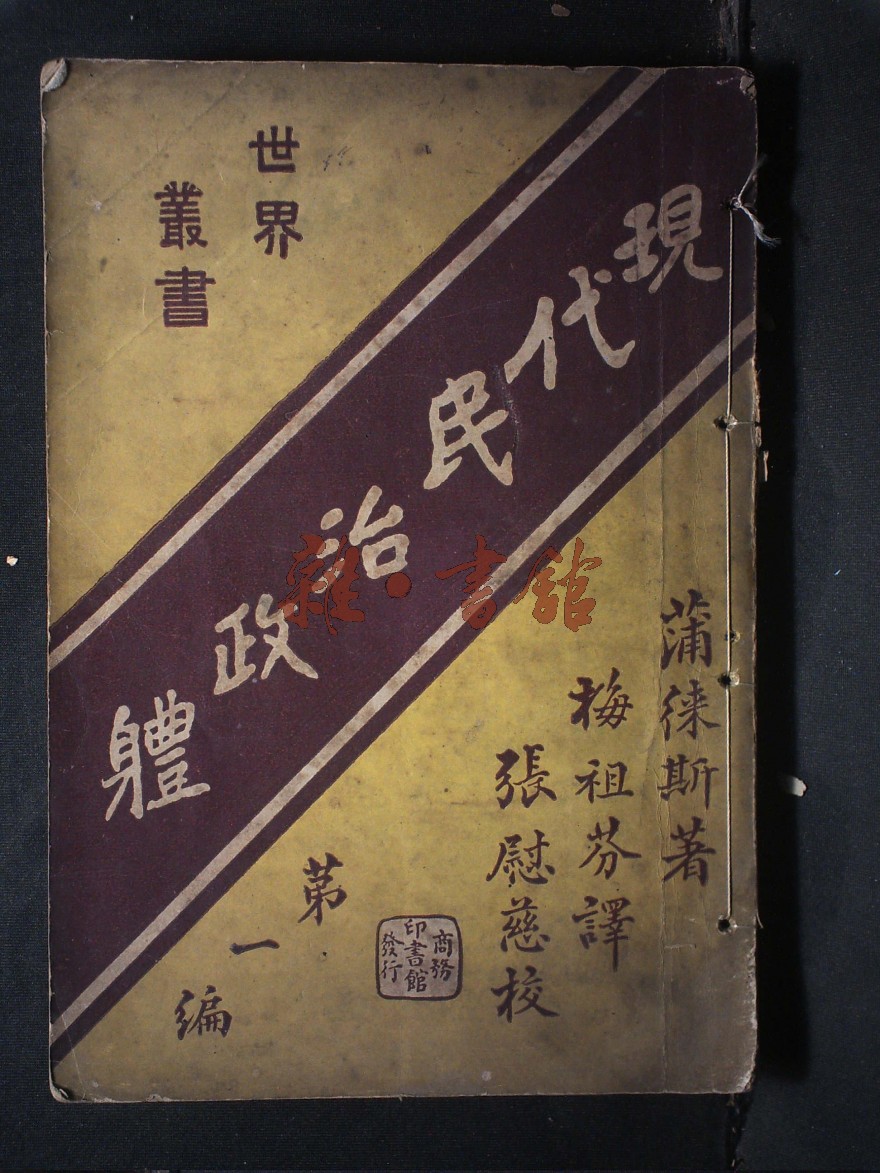 世界
叢書
現代民治政體
蒲徠斯著
梅祖芬譯
張慰慈校
第一編
商務
印書館
發行
雜·書舘